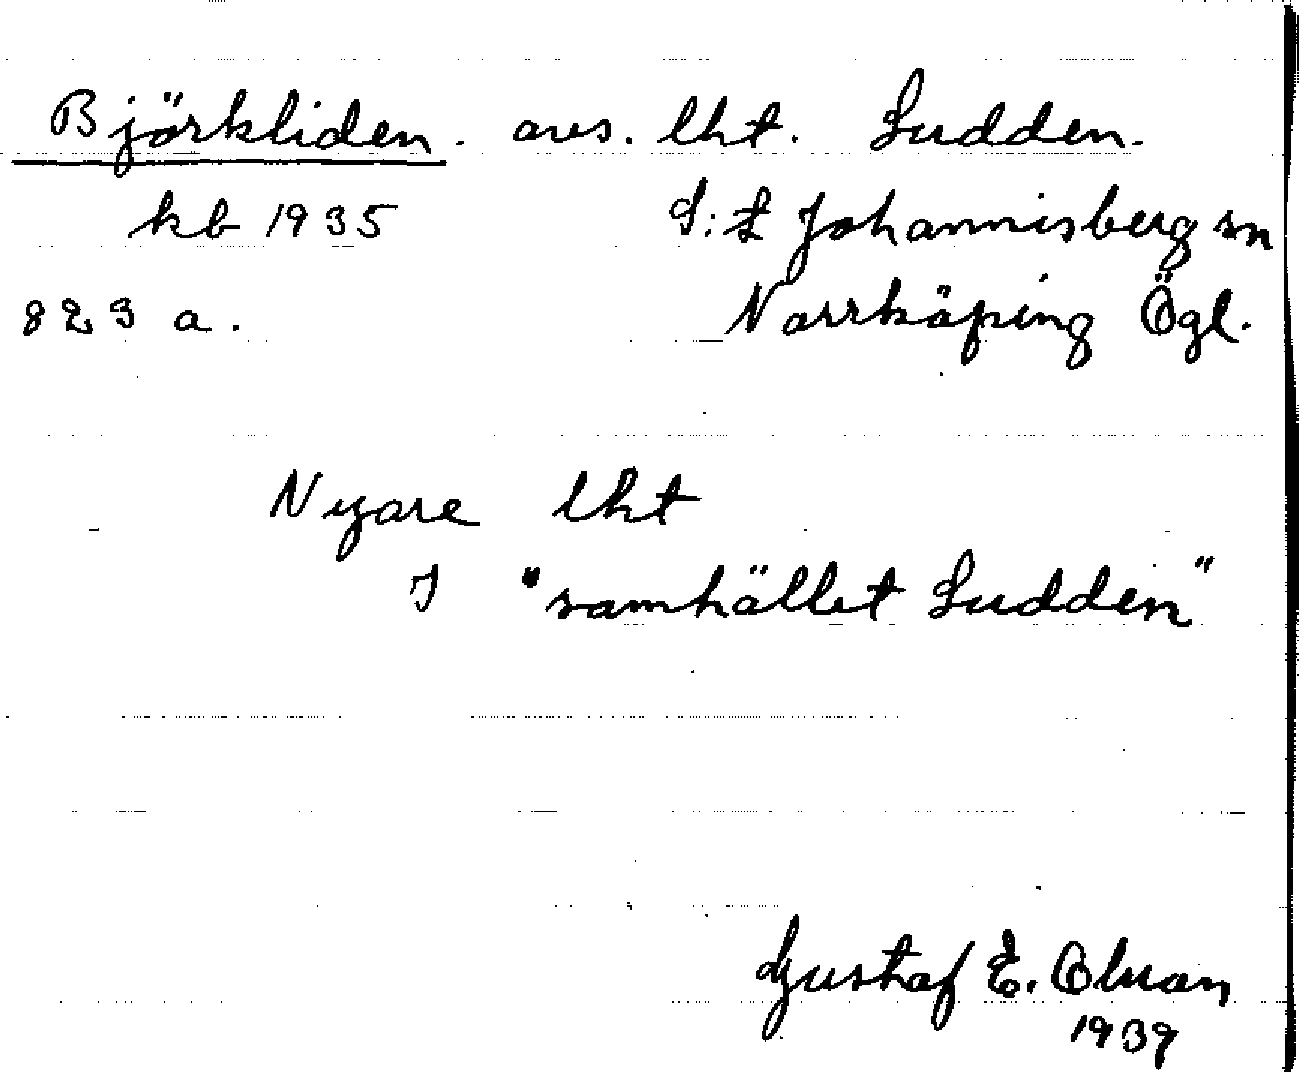 Björkliden. avs. lht. Sudden.
kb 1935 S:t Johannisberg sn
823 a. Norrköping Ögl.
Nyare lht
I "samhället Sudden"
Gustaf E. Olman
1939